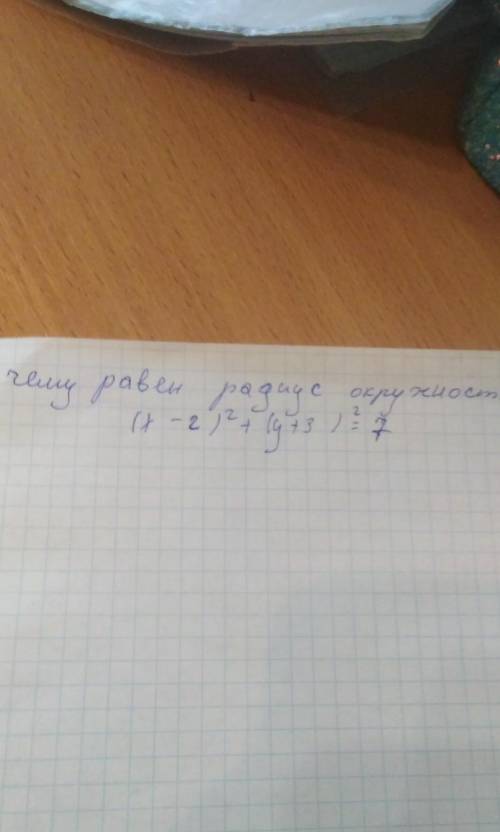 чему равен радиус окружност
(x - 2)² + (y + 3)² = 7